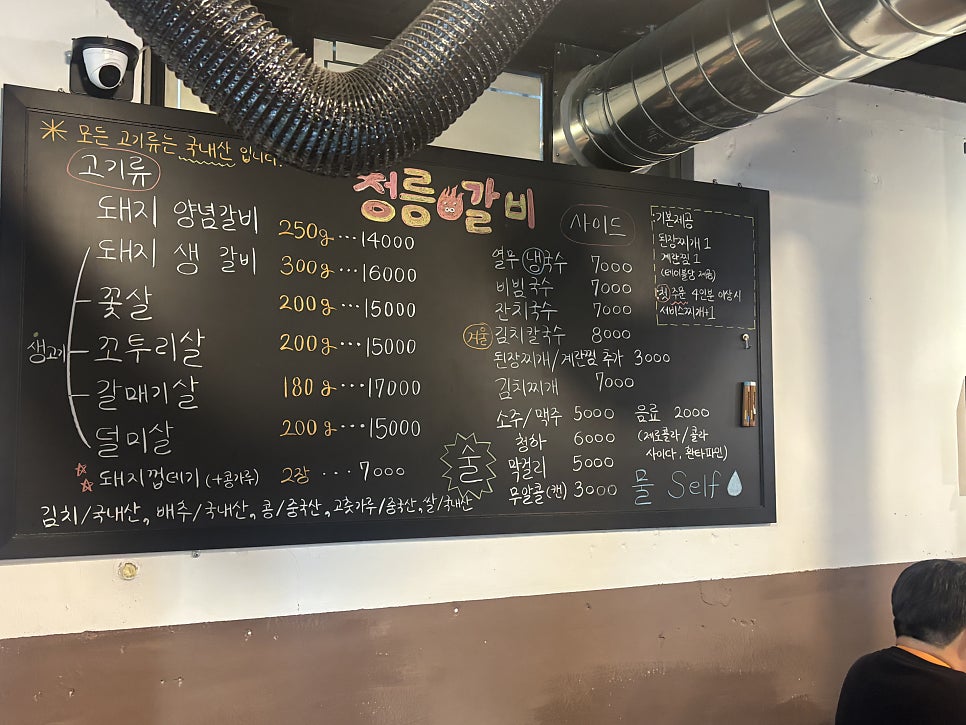 * 모든 고기류는 국내산 입니다.
청릉갈비
고기류
돼지 양념갈비 250g ... 14000
돼지 생 갈비 300g ... 16000
생고기
꽃살 200g ... 15000
꼬투리살 200g ... 15000
갈매기살 180g ... 17000
덜미살 200g ... 15000
돼지껍데기 (+콩가루) 2장 .... 7000
김치/국내산, 배추/국내산, 콩/중국산, 고춧가루/중국산, 쌀/국내산
사이드
열무 냉국수 7000
비빔국수 7000
잔치국수 7000
겨울 김치칼국수 8000
된장찌개/계란찜 추가 3000
김치찌개 7000
술
소주/맥주 5000
청하 6000
막걸리 5000
무알콜(캔) 3000
음료 2000
(제로콜라/콜라
사이다, 환타파인)
물 Self
기본제공
된장찌개 1
계란찜 1
(테이블당 제공)
첫 주문 4인분 이상시
서비스찌개+1